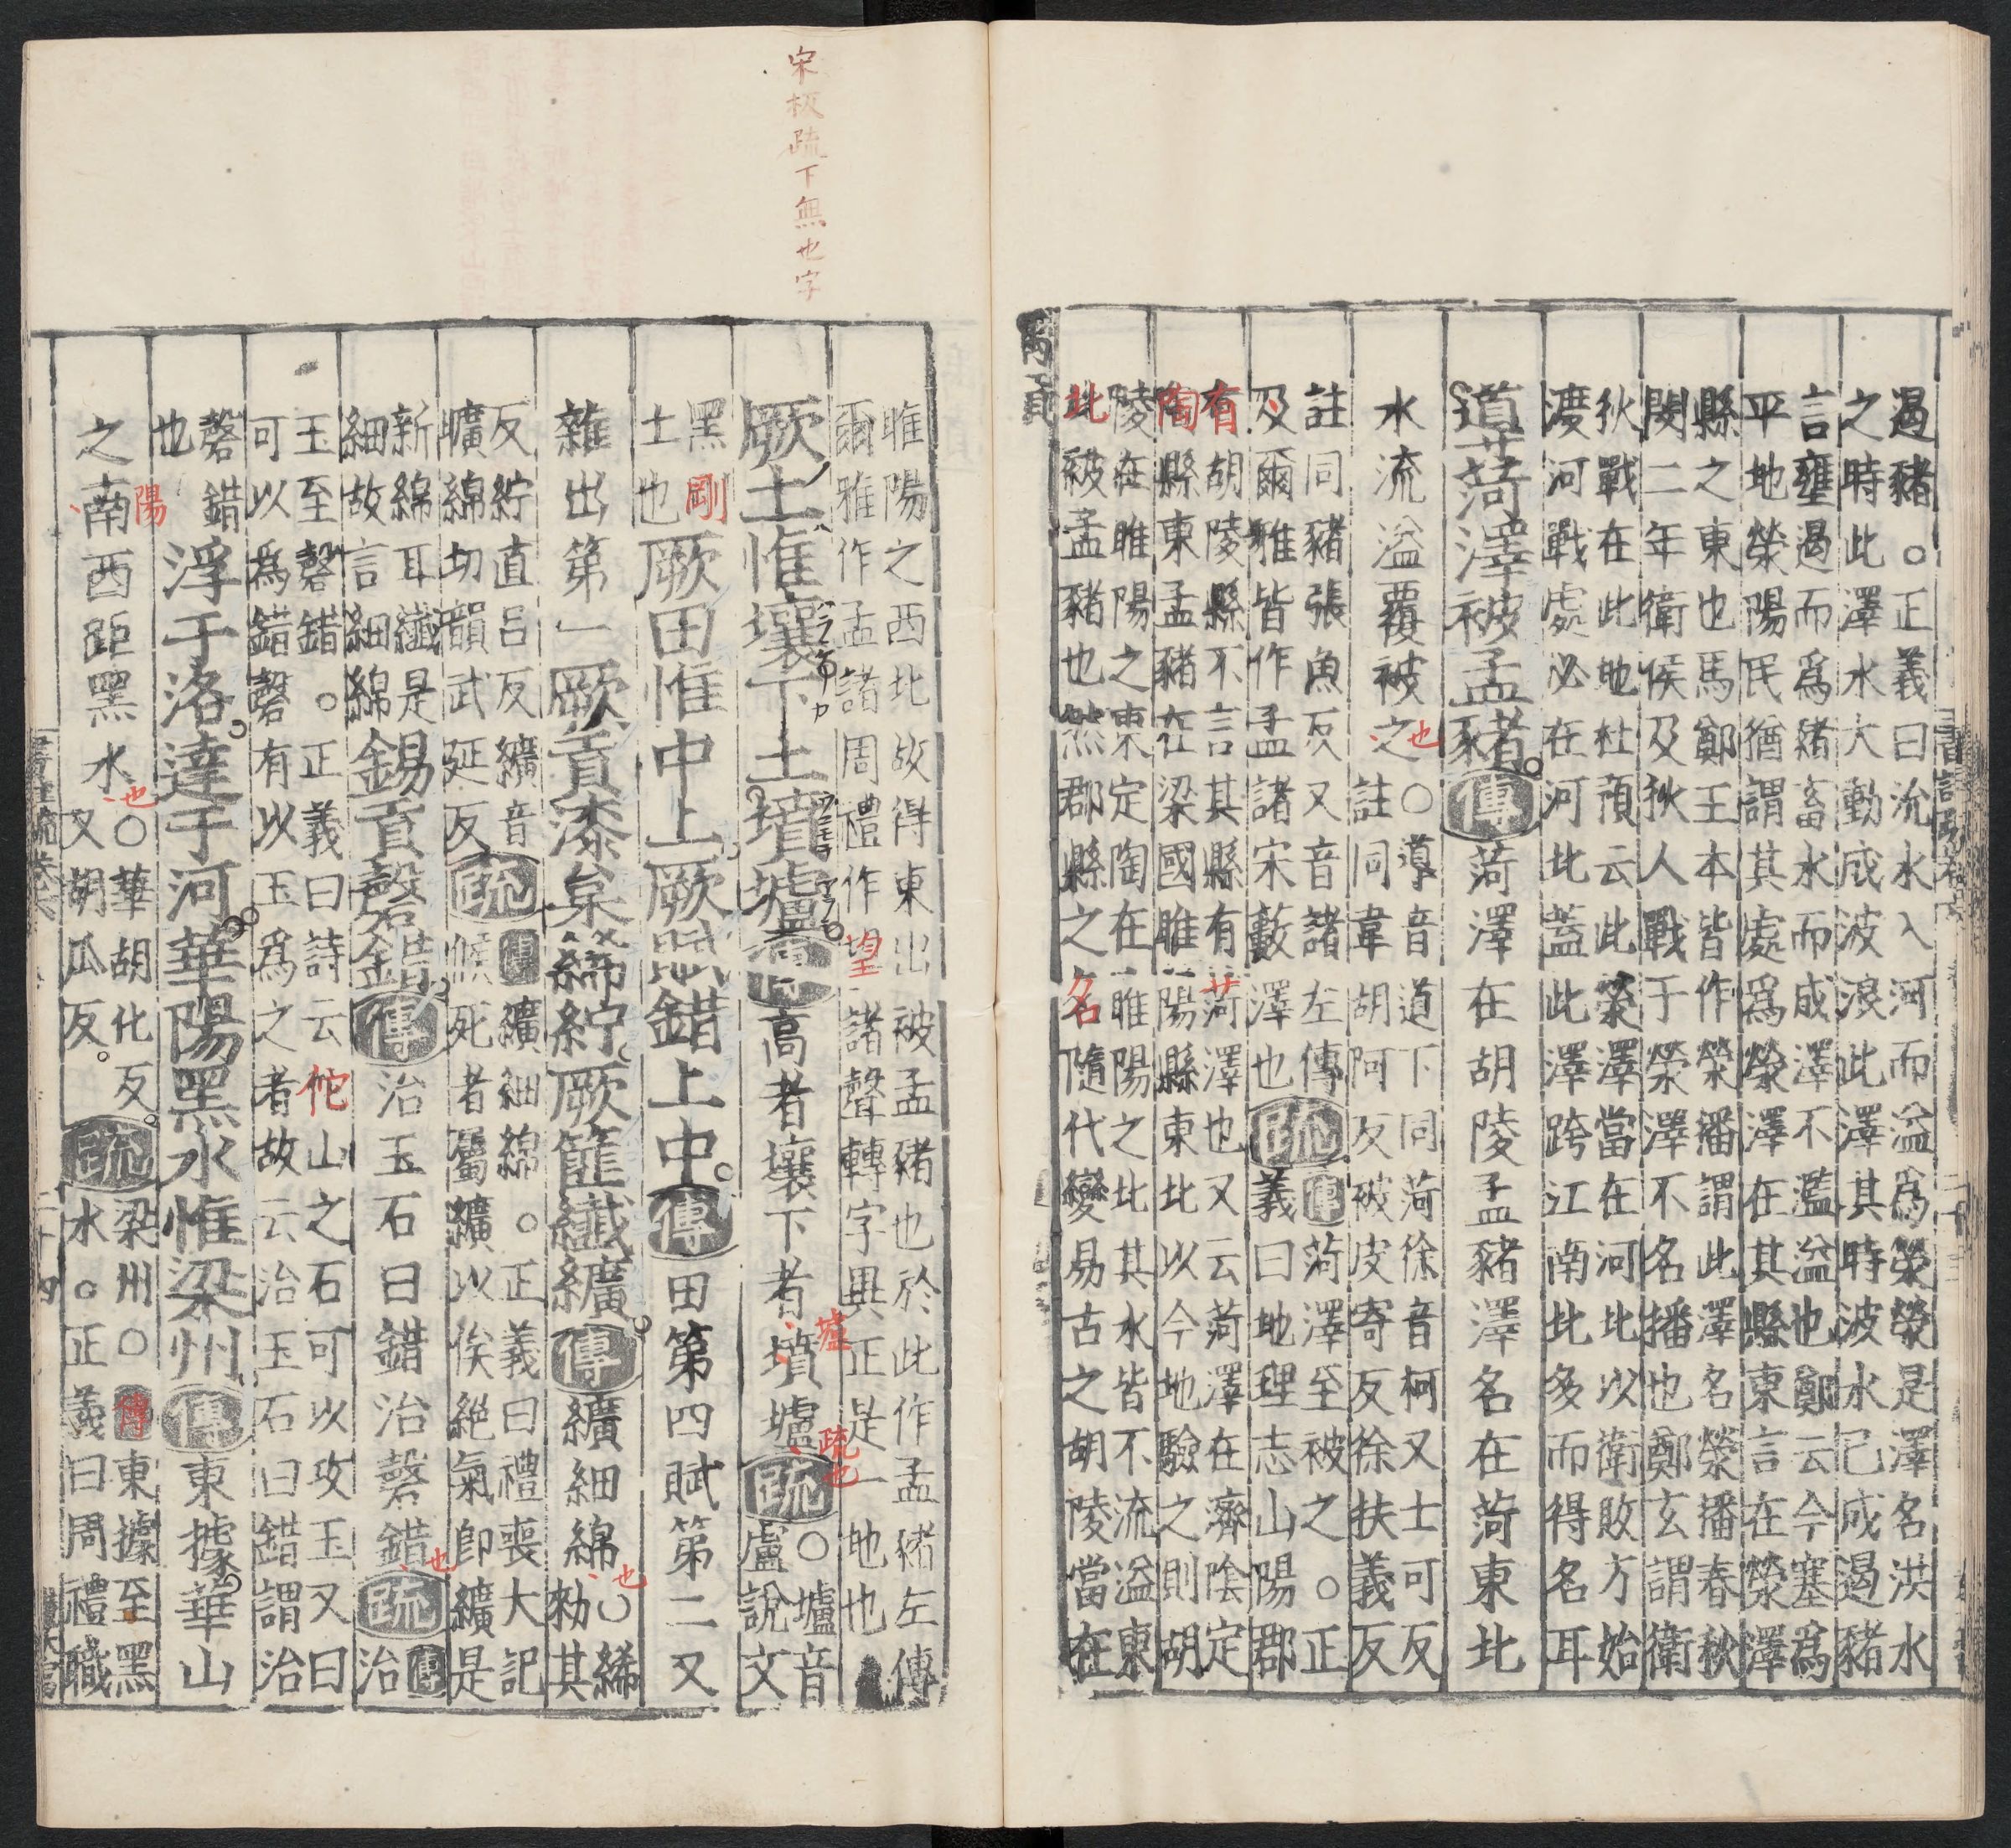 遏豬○正義曰沇水入河而溢爲滎滎是澤名洪水
之時此澤水大動成波浪此澤其時波水已成遏豬
言壅遏而爲豬畜水而成澤不濫溢也鄭云今塞爲
平地滎陽民猶謂其處爲滎澤在其縣東言在滎澤
縣之東也馬鄭王本皆作滎潘謂此澤名滎播春秋
閔二年衛侯及狄人戰于滎澤不名播也鄭玄謂衛
狄戰在此地杜預云此滎澤當在河北以衛敗方始
渡河戰處必在河北蓋此澤跨江南北多而得名耳
道菏澤被孟豬傳菏澤在胡陵孟豬澤名在菏東北
水流溢覆被之也○導音道下同菏徐音柯又士可反
註同韋胡阿反被皮寄反徐扶義反
註同豬張魚反又音諸左傳
及爾雅皆作孟諸宋藪澤也疏傳菏澤至被之○正
義曰地理志山陽郡
有胡陵縣不言其縣有菏澤也又云菏澤在濟陰定
陶縣東孟豬在梁國睢陽縣東北以今地驗之則胡
陵在睢陽之東定陶在睢陽之北其水皆不流溢東
北被孟豬也然郡縣之名隨代變易古之胡陵當在
宋板疏下無也字
睢陽之西北故得東出被孟豬也於此作孟豬左傳
爾雅作孟諸周禮作望諸聲轉字異正是一地也
厥土惟壤下土墳壚傳高者壤下者墳壚壚疏也疏○壚音
盧說文
黑剛
土也厥田惟中上厥賦錯上中傳田第四賦第二又
雜出第一厥貢漆枲絺紵厥篚纖纊傳纊細綿也○絺
勑其
反紵直呂反纊音
曠綿切韻武延反疏傳纊細綿○正義曰禮喪大記
候死者屬纊以俟絕氣卽纊是
新綿耳纖是
細故言細綿錫貢磬錯傳治玉石曰錯治磬錯也疏傳
治
玉至磬錯○正義曰詩云佗山之石可以攻玉又曰
可以爲錯磬有以玉爲之者故云治玉石曰錯謂治
磬錯
也浮于洛達于河華陽黑水惟梁州傳東據華山
之南陽西距黑水也○華胡化反
又胡瓜反疏梁州○傳東據至黑
水○正義曰周禮職